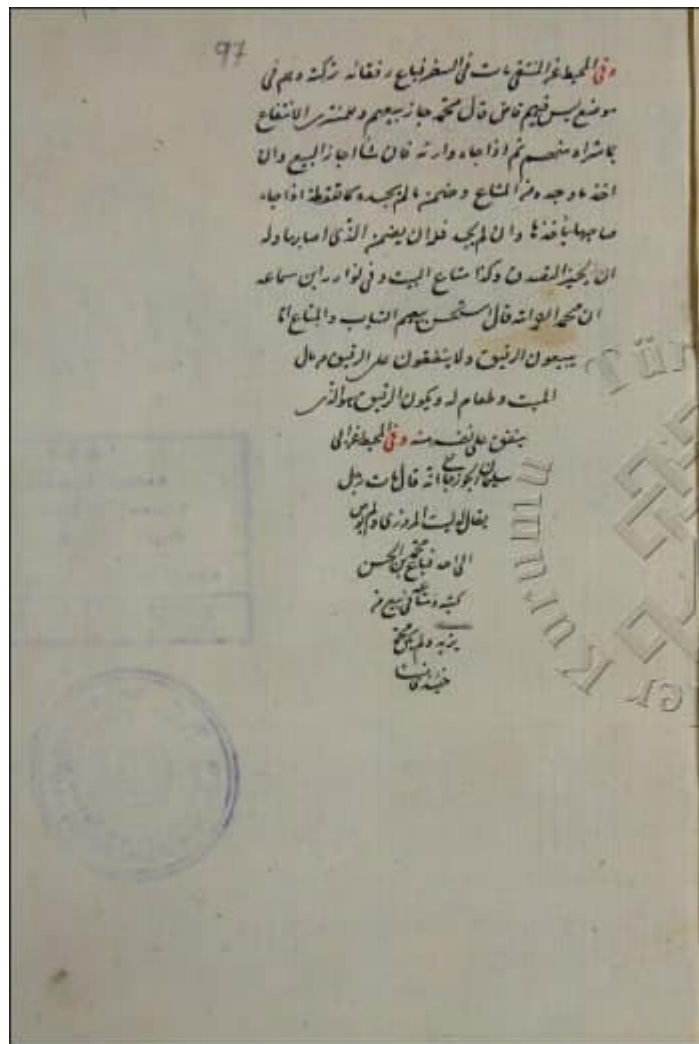 97
وفى المحيط عن المنتقى مات فى السفر فباع رفقائه تركته وهم فى
موضع ليس فيهم قاض قال محمد جاز بيعهم وللمشترى الانتفاع
بما شراه منهم ثم اذا جاء وارثه فان شاء اجاز البيع وان
اخذ ما وجد من المتاع وضمن ما لم يجده كاللقطة اذا جاء
صاحبها يأخذها وان لم يجد فله ان يضمن الذى اصابها وله
ان يجيز التصدق وكذا متاع الميت وفى نوادر ابن سماعه
ان محمدا قال استحسن بيعهم الثياب والمتاع اما
يبيعون الرقيق ولا ينفقون على الرقيق من مال
الميت وطعام له ويكون الرقيق هو الذى
ينفق على نفسه منه وفى المحيط عن ابى
سليمان الجوزجانى انه قال مات رجل
يقال ليث المروزى ولم يوص
الى احد فباع محمد بن الحسن
كتبه ومتاعه فى بيع من
يزيد ولم يكن محمد
حينئذ قاضيا